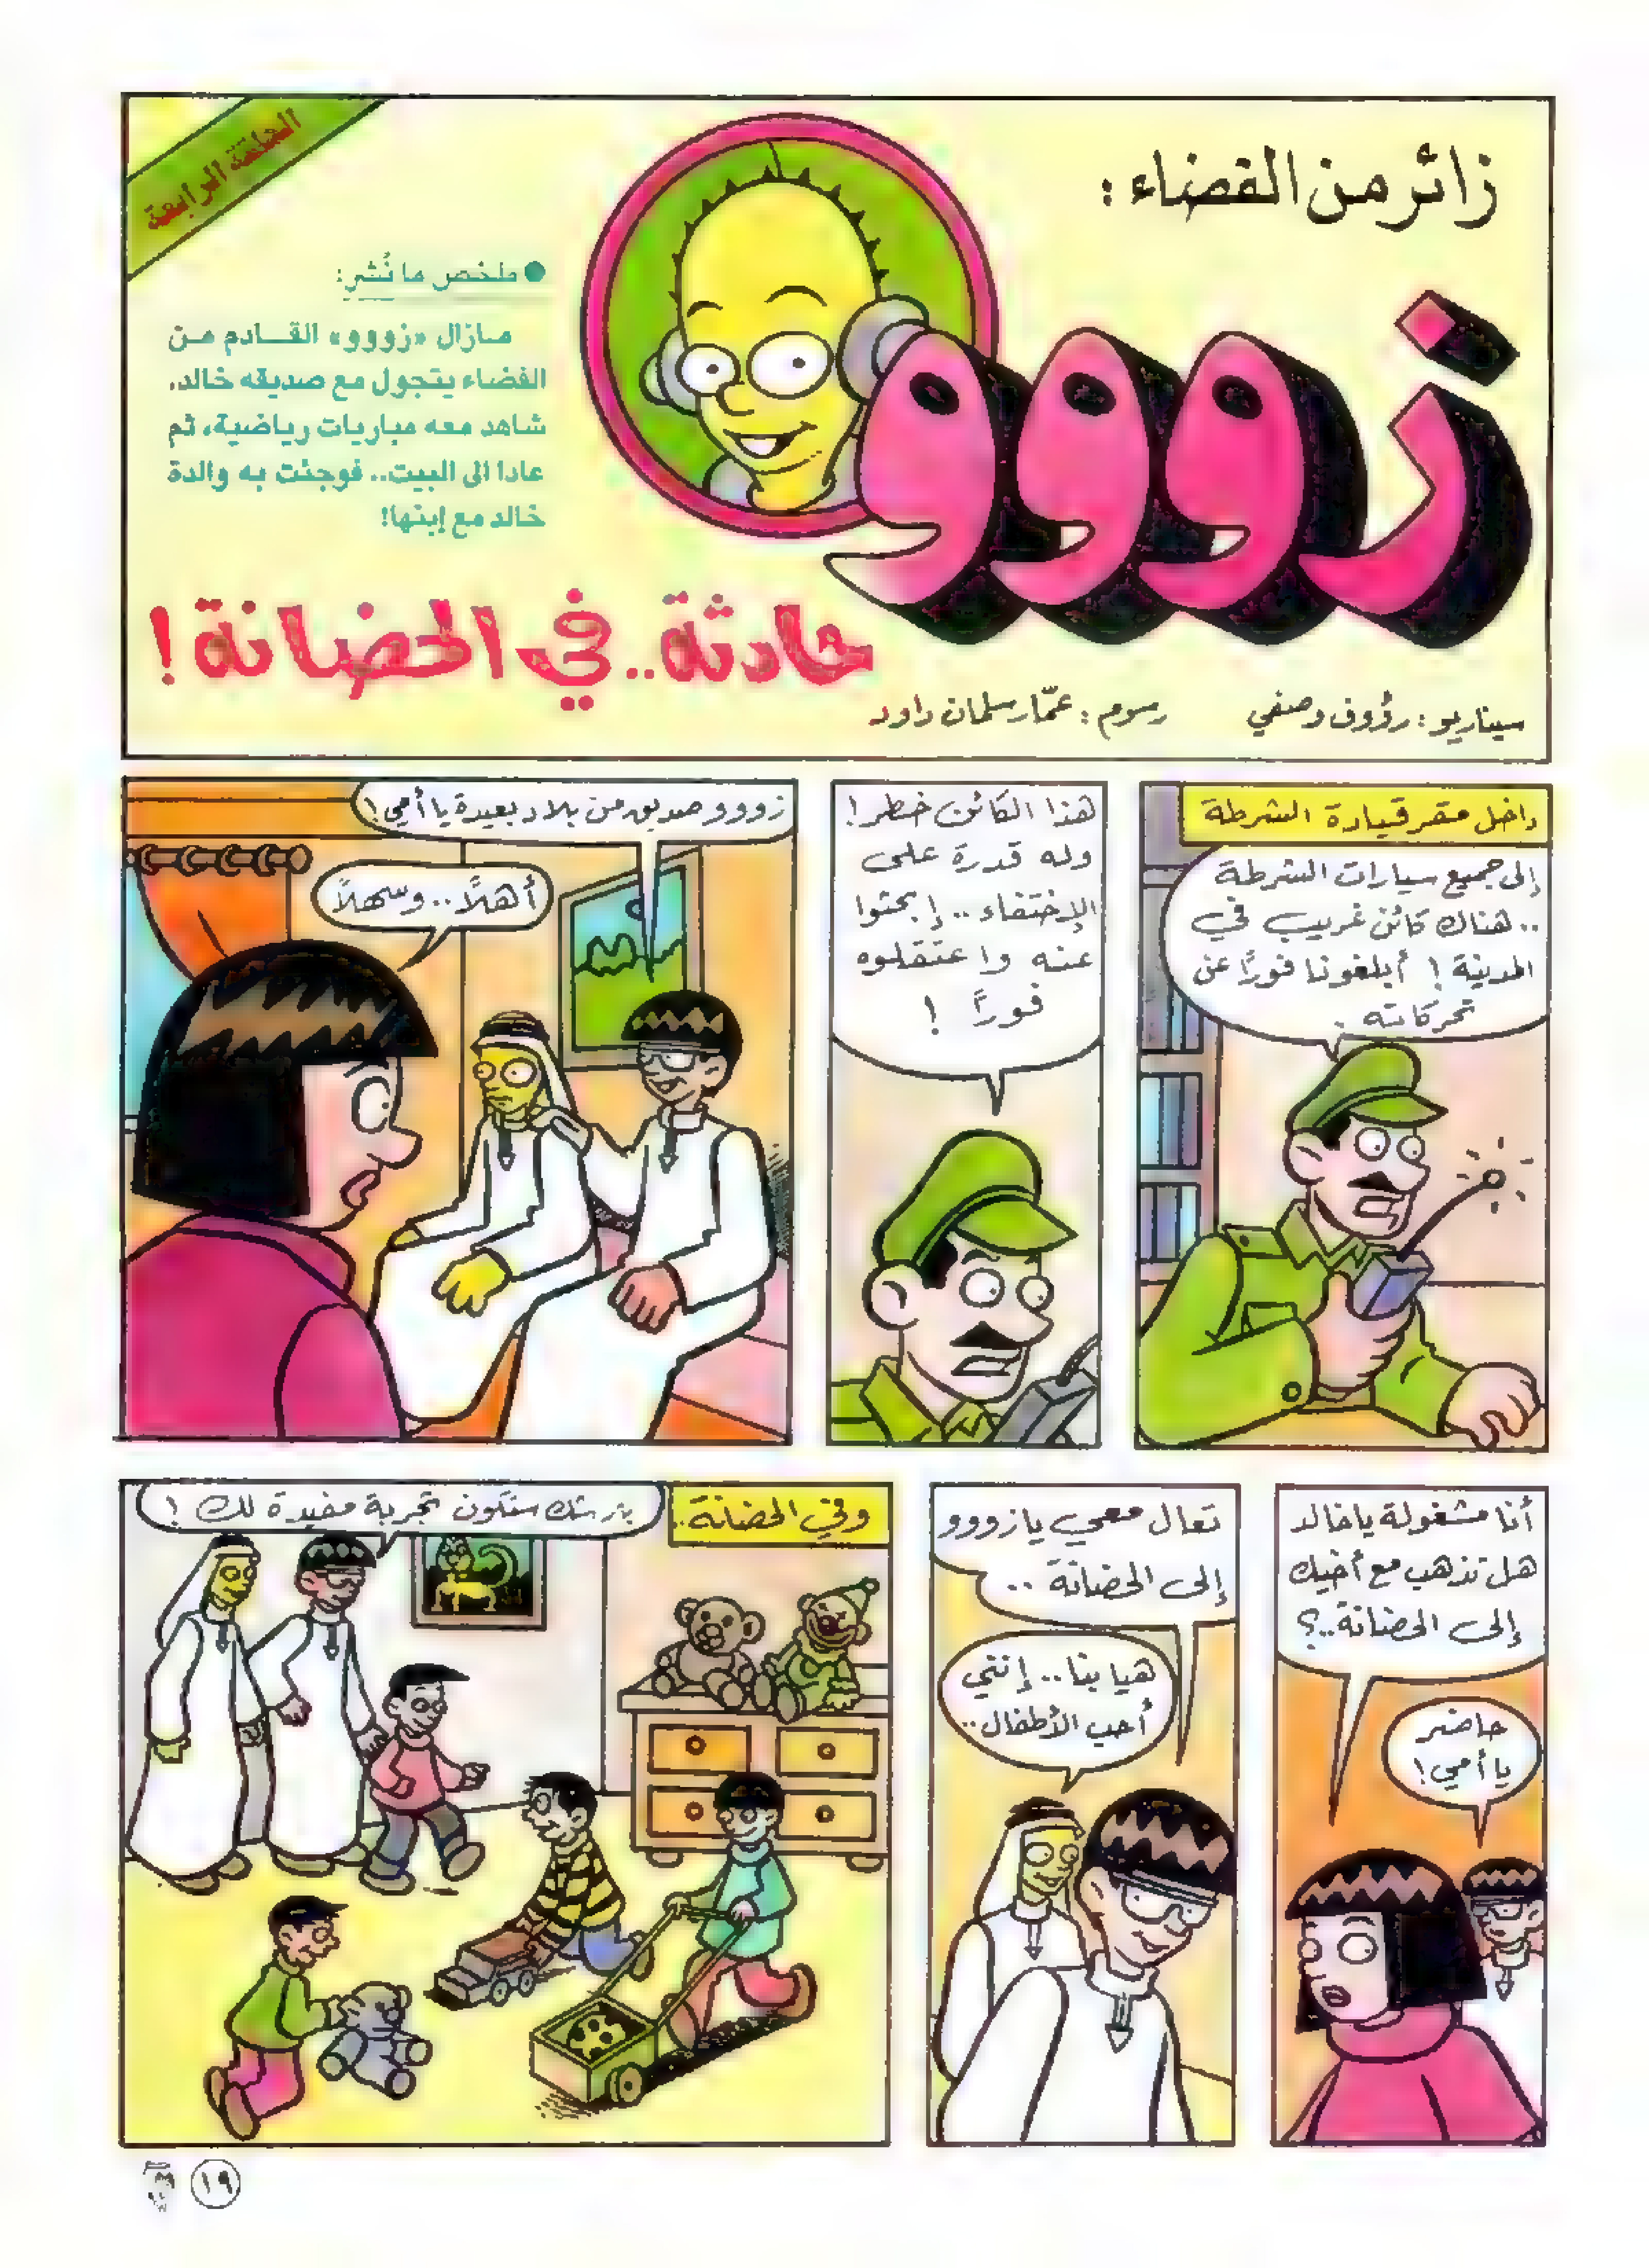 زائر من الفضاء:
زووو
الحلقة الرابعة
● ملخص ما نُشر:
مازال «زووو» القادم من
الفضاء يتجول مع صديقه خالد،
شاهد معه مباريات رياضية، ثم
عادا الى البيت.. فوجئت به والدة
خالد مع إبنها!
حادثة.. في الحضانة!
سيناريو: رؤوف وصفي
رسوم: عمّار سلمان داود
داخل مقر قيادة الشرطة
إلى جميع سيارات الشرطة
.. هناك كائن غريب في
المدينة! أبلغونا فورًا عن
تحركاته.
هذا الكائن خطر!
وله قدرة على
الإختفاء.. إبحثوا
عنه واعتقلوه
فورًا!
زووو صديق من بلاد بعيدة يا أمي!
أهلًا.. وسهلًا
أنا مشغولة يا خالد
هل تذهب مع أخيك
إلى الحضانة..؟
حاضر
يا أمي!
تعال معي يا زووو
إلى الحضانة..
هيا بنا.. إنني
أحب الأطفال..
وفي الحضانة..
ستكون تجربة مفيدة لك!
١٩